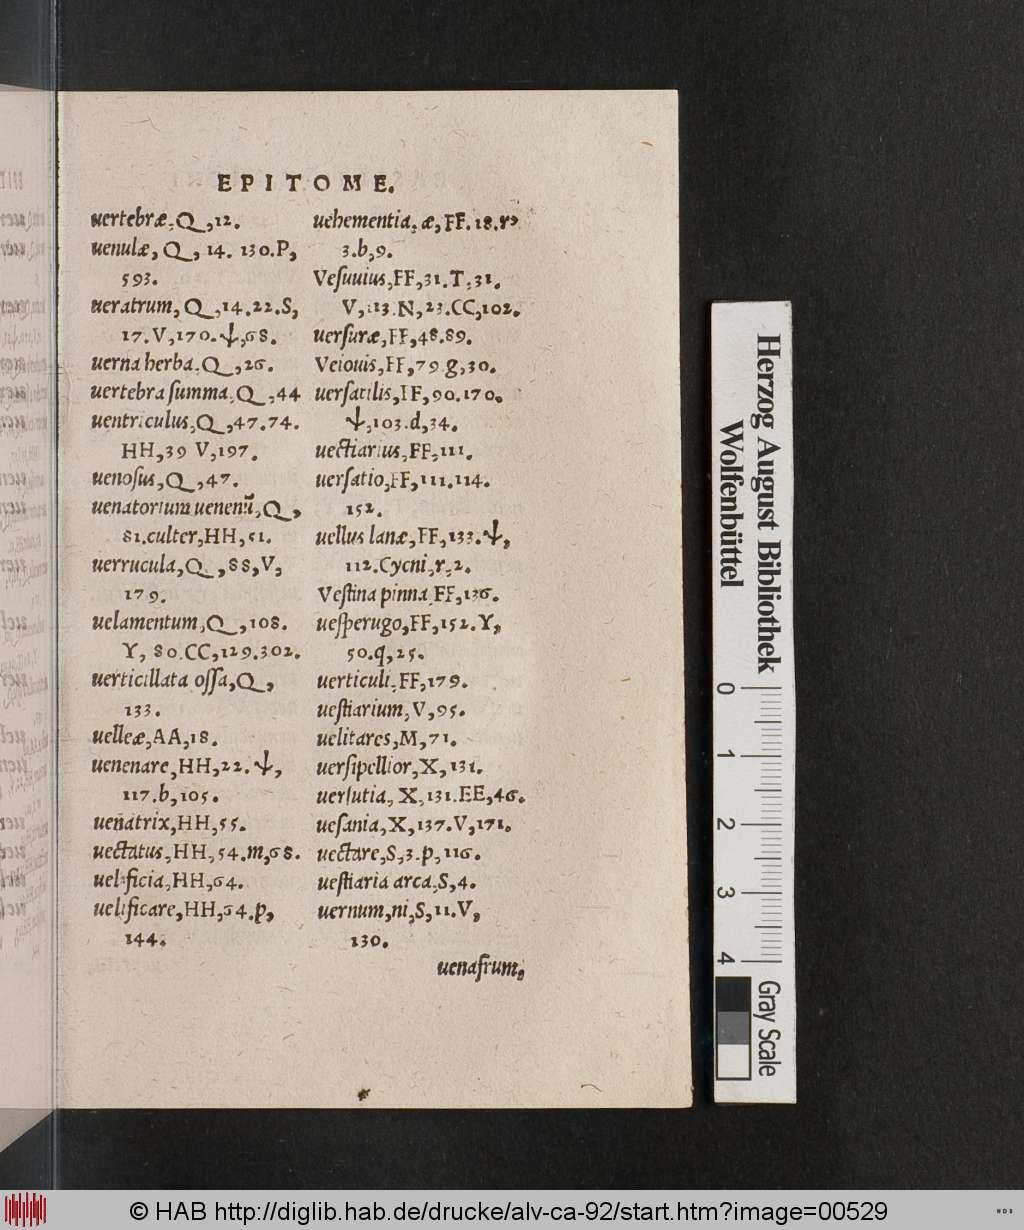 EPITOME.
uertebræ, Q, 12.
uenulæ, Q, 14. 130. P,
593.
ueratrum, Q, 14. 22. S,
17. V, 170. ↓, 68.
uerna herba, Q, 26.
uertebra summa, Q, 44
uentriculus, Q, 47. 74.
HH, 39 V, 197.
uenosus, Q, 47.
uenatorium uenenū, Q,
81. culter, HH, 51.
uerrucula, Q, 88, V,
179.
uelamentum, Q, 108.
Y, 80. CC, 129. 302.
uerticillata ossa, Q,
133.
uelleæ, AA, 18.
uenenare, HH, 22. ↓,
117. b, 105.
uenatrix, HH, 55.
uectatus, HH, 54. m, 68.
uelificia, HH, 64.
uelificare, HH, 64. p,
144.
uehementia, æ, FF. 18. r,
3. b, 9.
Vesuuius, FF, 31. T, 31.
V, 113. N, 23. CC, 102.
uersuræ, FF, 48. 89.
Veiouis, FF, 79. g, 30.
uersatilis, FF, 90. 170.
↓, 103. d, 34.
uectiarius, FF, 111.
uersatio, FF, 111. 114.
152.
uellus lanæ, FF, 133. ↓,
112. Cycni, r, 2.
Vestina pinna FF, 136.
uesperugo, FF, 152. Y,
50. q, 25.
uerticuli, FF, 179.
uestiarium, V, 95.
uelitares, M, 71.
uersipellior, X, 131.
uersutia, X, 131. EE, 46.
uesania, X, 137. V, 171.
uectare, S, 3. p, 116.
uestiaria arca, S, 4.
uernum, ni, S, 11. V,
130.
uenafrum,
Herzog August Bibliothek
Wolfenbüttel
0 1 2 3 4
Gray Scale
© HAB http://diglib.hab.de/drucke/alv-ca-92/start.htm?image=00529